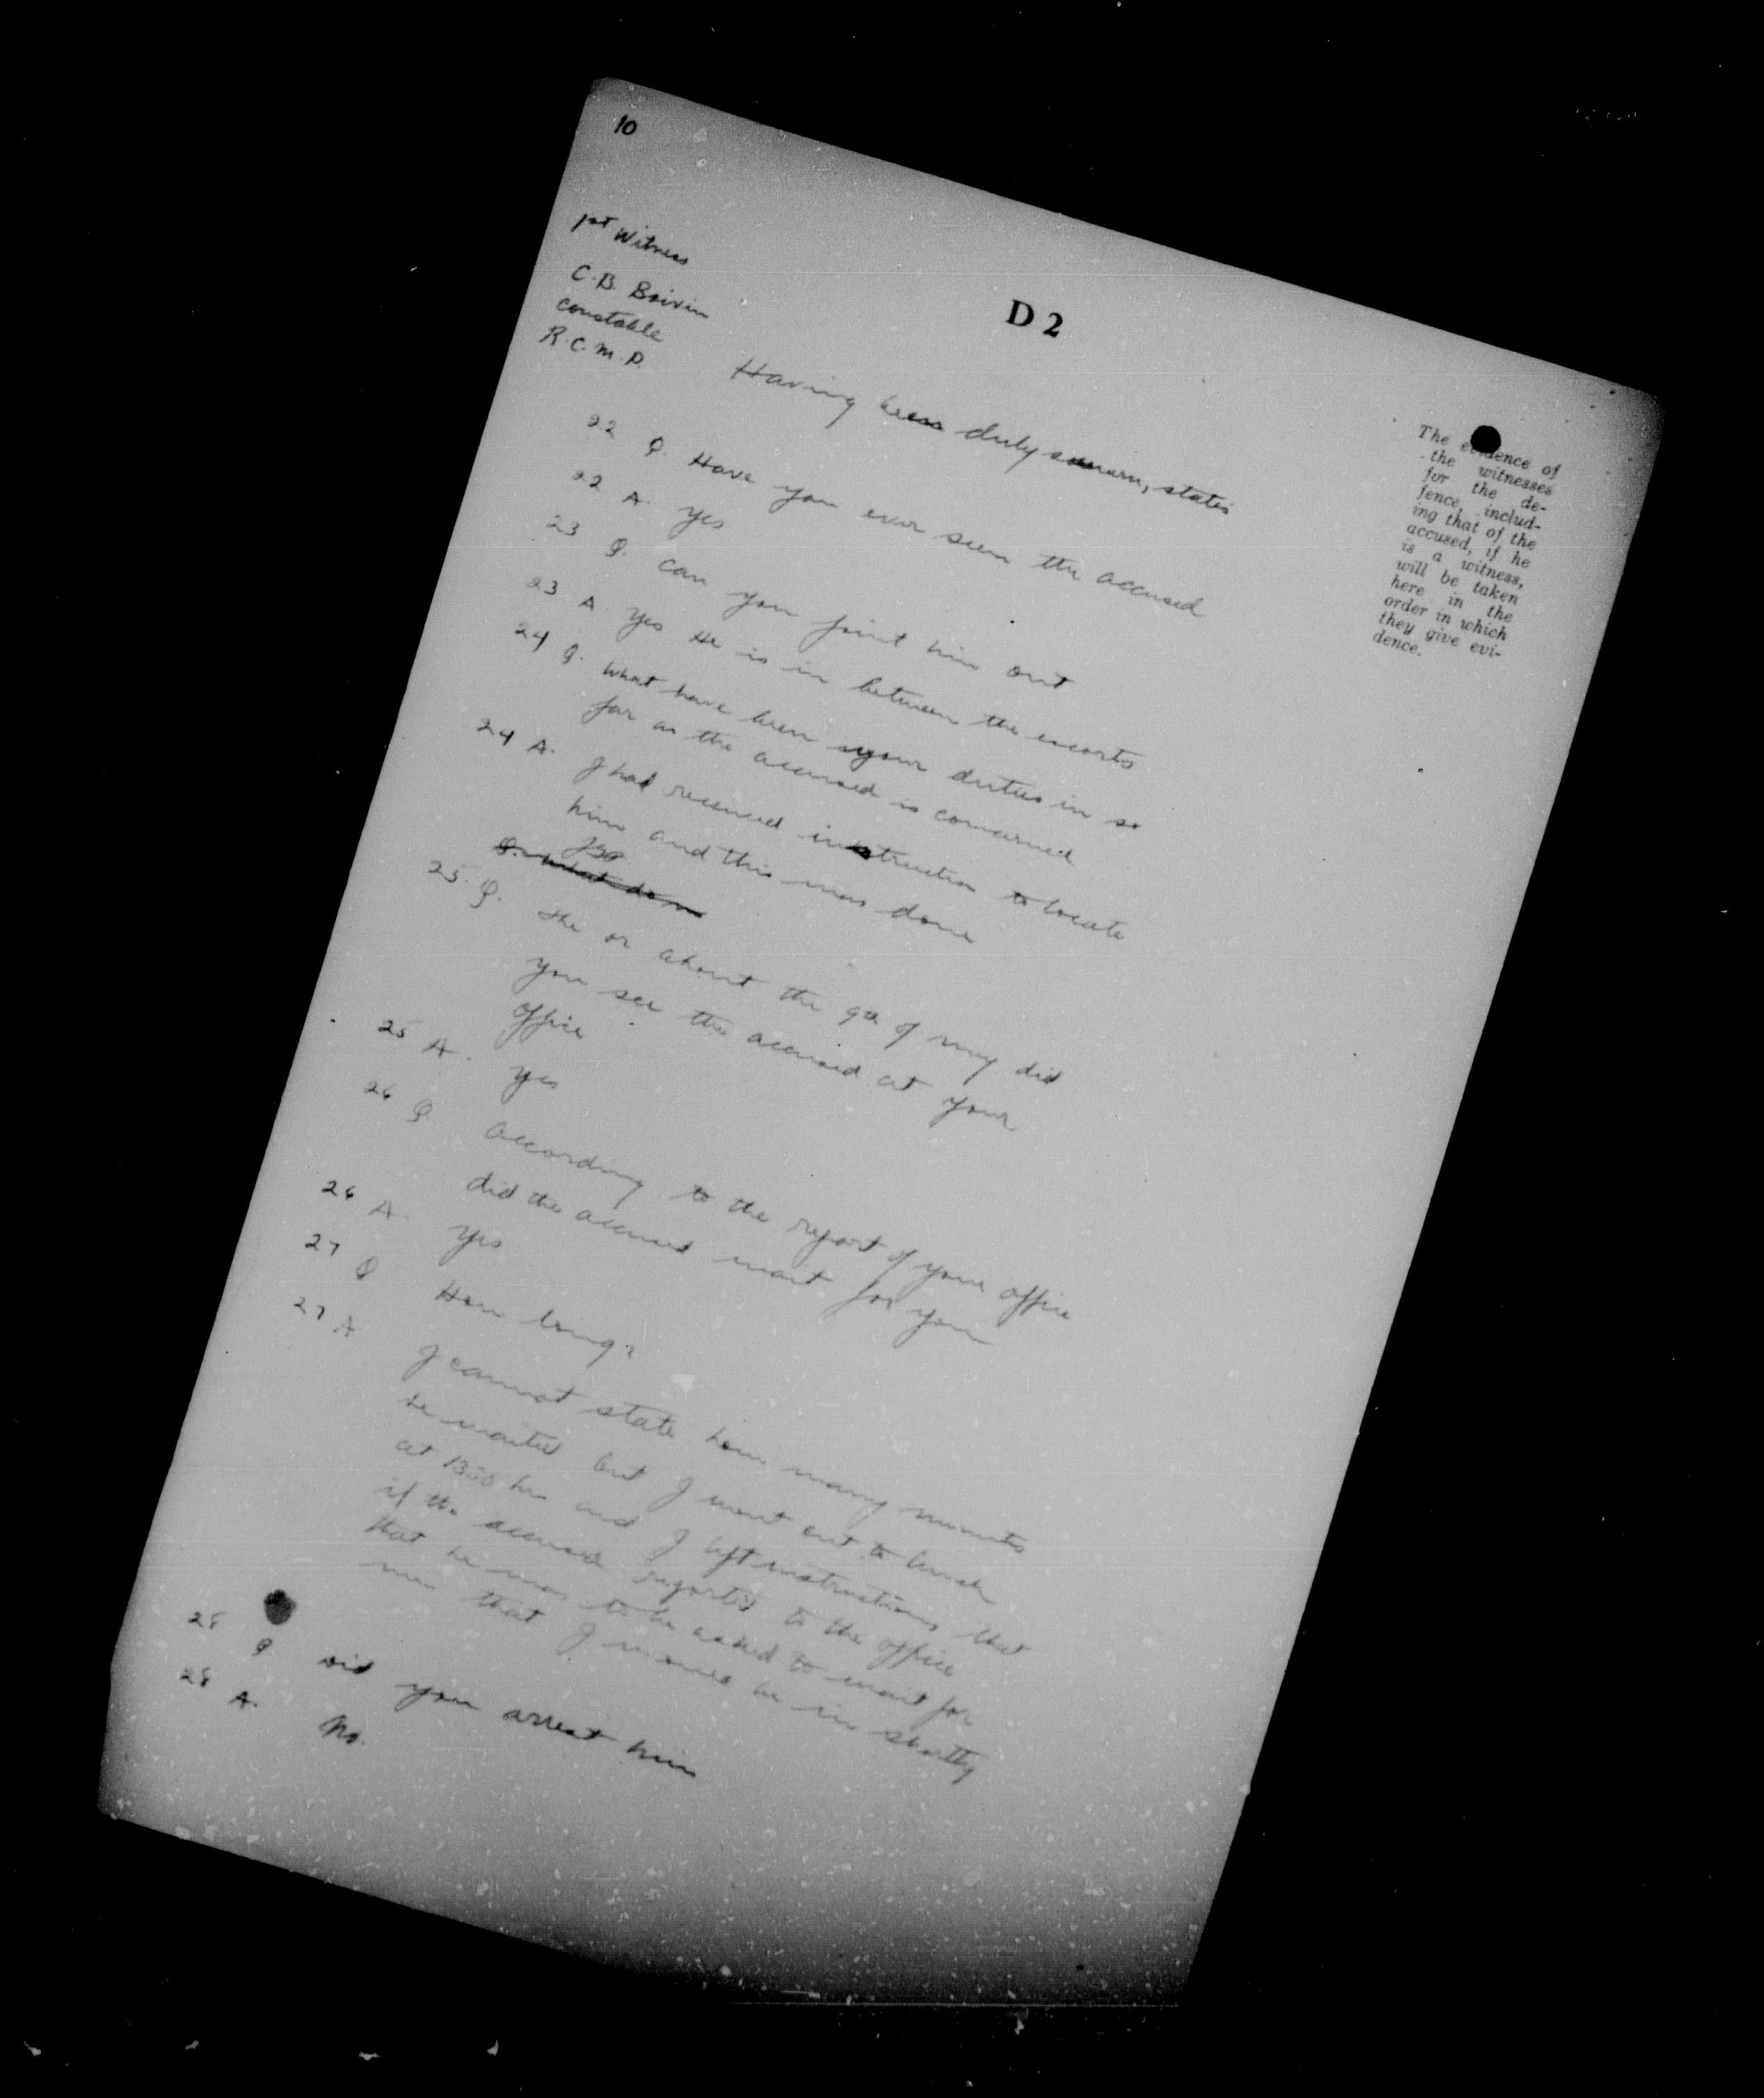 10
1st Witness
C.B. Boivin
constable
R.C.M.P.
D 2
Having been duly sworn, states
The evidence of
the witnesses
for the de-
fence, includ-
ing that of the
accused, if he
is a witness,
will be taken
here in the
order in which
they give evi-
dence.
22 Q. Have you ever seen the accused
22 A. Yes
23 Q. Can you point him out
23 A. Yes He is in between the escorts
24 Q. What have been your duties in so
far as the accused is concerned
24 A. I had received instruction to locate
him and this was done
Q. What do
25. Q. the or about the 9th of may did
you see the accused at your
office
25 A. Yes
26 Q. According to the report of your office
did the accused wait for you
26 A. Yes
27 Q How long?
27 A I cannot state how many minutes
he waited but I went out to lunch
at hrs and I left instructions that
if the accused reported to the office
that he was to be asked to wait for
me that I would be in shortly
28 Q Did you arrest him
28 A. No.